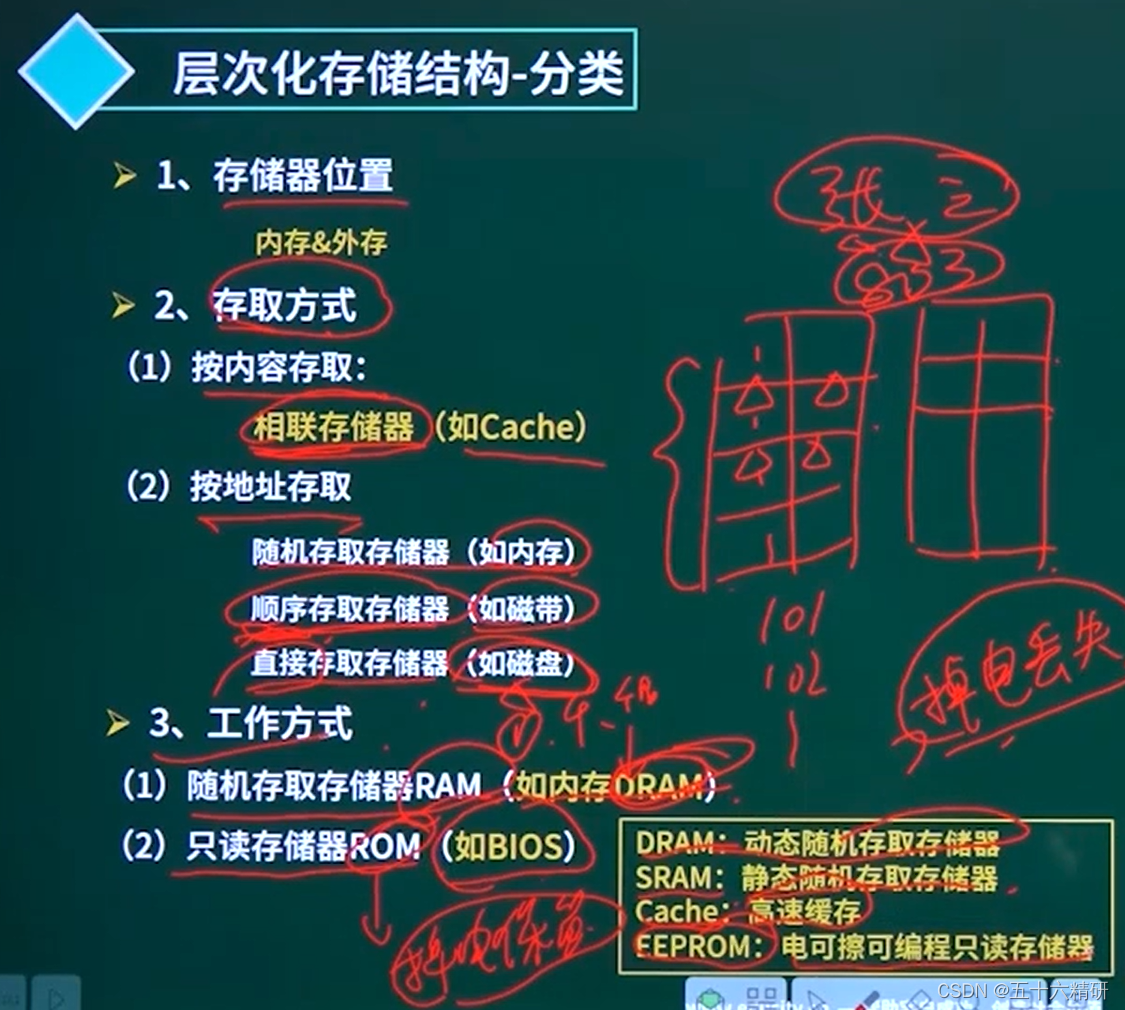 层次化存储结构-分类
1、存储器位置
内存&外存
2、存取方式
（1）按内容存取：
相联存储器（如Cache）
（2）按地址存取
随机存取存储器（如内存）
顺序存取存储器（如磁带）
直接存取存储器（如磁盘）
3、工作方式
（1）随机存取存储器RAM（如内存DRAM）
（2）只读存储器ROM（如BIOS）
DRAM：动态随机存取存储器
SRAM：静态随机存取存储器
Cache：高速缓存
EEPROM：电可擦可编程只读存储器
张三
101
102
掉电丢失
掉电保留
CSDN @五十六精研